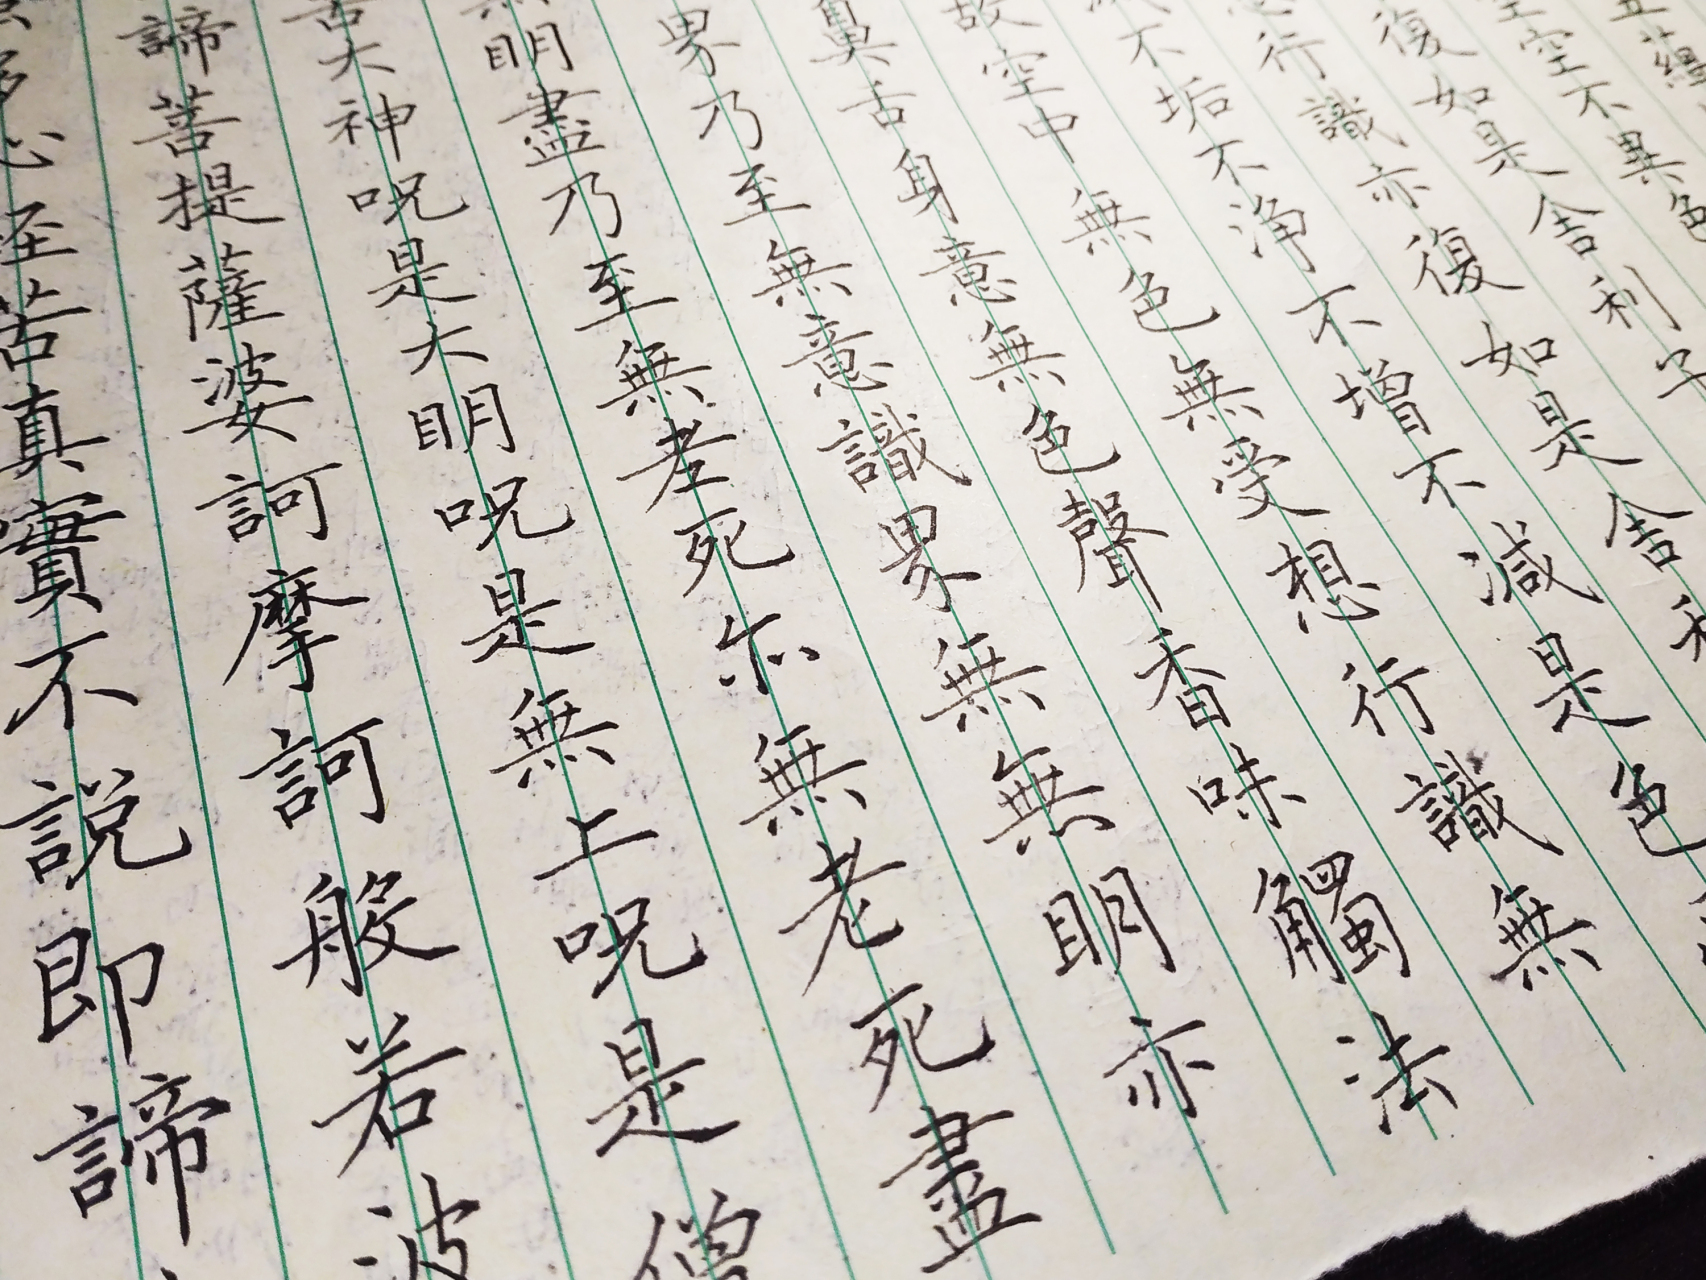 空不異色
復如是舍利子
行識亦復如是舍利
不垢不淨不增不減是色
故空中無色無受想行識無
鼻舌身意無色聲香味觸法
界乃至無意識界無無明亦
明盡乃至無老死亦無老死盡
大神呪是大明呪是無上呪是僧
諦菩提薩婆訶摩訶般若波
心經苦真實不說即諦